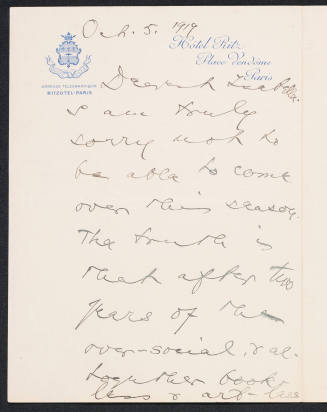 Oct. 5. 1919
Hôtel Ritz
Place Vendôme
Paris
ADRESSE TÉLÉGRAPHIQUE
RITZOTEL-PARIS
Dearest Isabella:
I am truly
sorry not to
be able to come
over this season.
The truth is
that after two
years of the
over-social, & al-
together book-
less & art-less